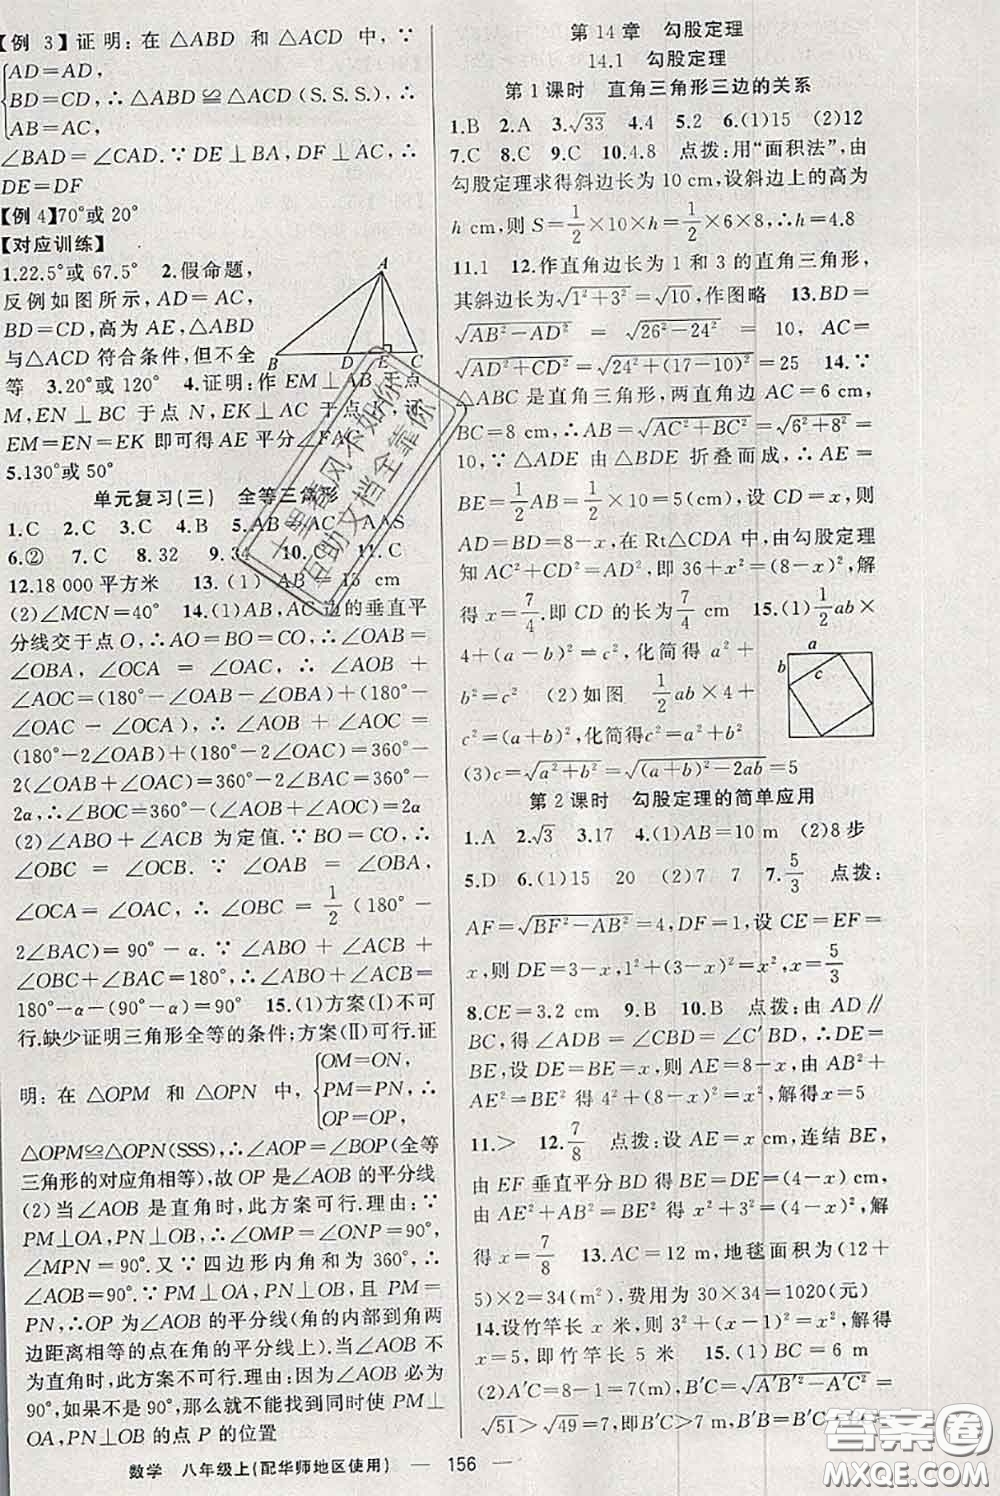 【例 3】证明：在△ABD 和△ACD 中，∵
AD=AD,
BD=CD,∴△ABD≌△ACD(S.S.S.)∴
AB=AC,
∠BAD=∠CAD.∵DE⊥BA,DF⊥AC,∴
DE=DF
【例 4】70°或 20°
【对应训练】
1.22.5°或 67.5° 2.假命题，
反例如图所示，AD=AC,
BD=CD，高为 AE,△ABD
与△ACD 符合条件，但不全
等 3.20°或 120° 4.证明：作 EM⊥AB 点
M,EN⊥BC 于点 N,EK⊥AC 于点
EM=EN=EK 即可得 AE 平分∠FAC
5.130°或 50°
A
B D E C
单元复习(三) 全等三角形
1.C 2.C 3.C 4.B 5.AB=AC AAS
6.② 7.C 8.32 9.34 10.C 11.C
12.18 000 平方米 13.(1) AB=15 cm
(2)∠MCN=40° 14.(1)AB,AC 边的垂直平
分线交于点 O,∴AO=BO=CO,∴∠OAB=
∠OBA,∠OCA=∠OAC,∴∠AOB+
∠AOC=(180°-∠OAB-∠OBA)+(180°-
∠OAC-∠OCA),∴∠AOB+∠AOC=
(180°-2∠OAB)+(180°-2∠OAC)=360°-
2(∠OAB+∠OAC)=360°-2∠BAC=360°-
2α,∴∠BOC=360°-(∠AOB+∠AOC)=2α
(2)∠ABO+∠ACB 为定值.∵BO=CO,∴
∠OBC=∠OCB.∵∠OAB=∠OBA,
∠OCA=∠OAC,∴∠OBC=1/2(180°-
2∠BAC)=90°-α.∵∠ABO+∠ACB+
∠OBC+∠BAC=180°,∴∠ABO+∠ACB=
180°-α-(90°-α)=90° 15.(1)方案(Ⅰ)不可
行.缺少证明三角形全等的条件；方案(Ⅱ)可行.证
明：在△OPM 和△OPN 中，
OM=ON,
PM=PN,∴
OP=OP,
△OPM≌△OPN(SSS),∴∠AOP=∠BOP(全等
三角形的对应角相等)，故 OP 是∠AOB 的平分线
(2)当∠AOB 是直角时，此方案可行.理由：∵
PM⊥OA,PN⊥OB,∴∠OMP=∠ONP=90°,
∠MPN=90°.又∵四边形内角和为 360°,∴
∠AOB=90°.∵PM⊥OA,PN⊥OB,且 PM=
PN,∴OP 为∠AOB 的平分线(角的内部到角两
边距离相等的点在角的平分线上).当∠AOB 不
为直角时，此方案不可行.理由：因为∠AOB 必为
90°,如果不是 90°,那么就不能找到同时使 PM⊥
OA,PN⊥OB 的点 P 的位置
第 14 章 勾股定理
14.1 勾股定理
第 1 课时 直角三角形三边的关系
1.B 2.A 3.√33 4.4 5.2 6.(1)15 (2)12
7.C 8.C 9.C 10.4.8 点拨：用“面积法”，由
勾股定理求得斜边长为 10 cm,设斜边上的高为
h cm,则 S=1/2×10×h=1/2×6×8,∴h=4.8
11.1 12.作直角边长为 1 和 3 的直角三角形，
其斜边长为√(1²+3²)=√10,作图略 13.BD=
√(AB²-AD²) = √(26²-24²) = 10, AC=
√(AD²+CD²)=√(24²+(17-10)²)=25 14.∵
△ABC 是直角三角形，两直角边 AC=6 cm,
BC=8 cm,∴AB=√(AC²+BC²)=√(6²+8²)=
10,∵△ADE 由△BDE 折叠而成，∴AE=
BE=1/2AB=1/2×10=5 cm,设 CD=x,
AD=BD=8-x,在 Rt△CDA 中，由勾股定理
知 AC²+CD²=AD²,即 36+x²=(8-x)²,解
得 x=7/4.即 CD 的长为7/4 cm 15.(1)1/2ab×
4+(a-b)²=c²,化简得 a²+
b²=c² (2)如图 1/2ab×4+
c²=(a+b)²,化简得c²=a²+b²
(3)c=√(a²+b²)=√((a+b)²-2ab)=5
a
b
c
第 2 课时 勾股定理的简单应用
1.A 2.√3 3.17 4.(1)AB=10 m (2)8 步
5.D 6.(1)15 20 (2)7 7 7.5/3 点拨：
AF=√(BF²-AB²)=4,DF=1,设 CE=EF=
x,则 DE=3-x,1²+(3-x)²=x²,x=5/3
8.CE=3.2 cm 9.B 10.B 点拨：由 AD∥
BC,得∠ADB=∠CBD=∠C′BD,从而
BE=DE=8-x,∴AE=8-x,由 AB²+
AE²=BE²得 4²+(8-x)²=x²,解得 x=5
11.> 12.7/8 点拨：设 AE=x cm,连结 BE,
由 EF 垂直平分 BD 得 BE=DE=(4-x) cm,
由 AE²+AB²=BE²得 x²+3²=(4-x)²,解
得 x=7/8 13.AC=12 m,地毯面积为(12+
5)×2=34(m²),费用为 30×34=1020(元)
14.设竹竿长 x 米，则 3²+(x-1)²=x²,解得
x=5,即竹竿长 5 米 15.(1)BC=6 m
(2)A′C=8-1=7(m),B′C=√(A′B′²-A′C²)
=√51>√49=7,即B′C>7 m,B′B=B′C-
数学 八年级上(配华师地区使用) — 156 —
十里春风不如你
互助文档全靠你
答案圈
MXQE.COM